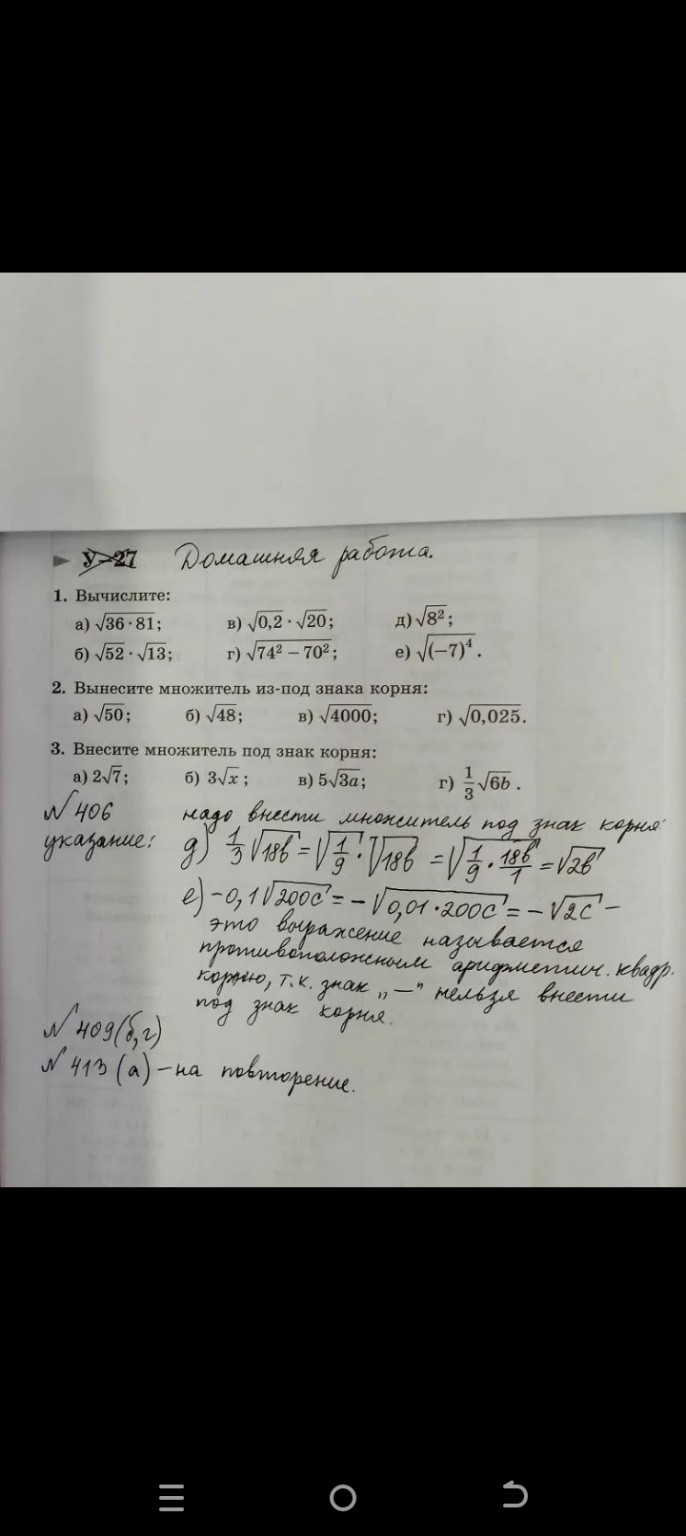 У–27 Домашняя работа.
1. Вычислите:
а) √36·81; в) √0,2 · √20; д) √8²;
б) √52 · √13; г) √74² – 70²; е) √(–7)⁴.
2. Вынесите множитель из-под знака корня:
а) √50; б) √48; в) √4000; г) √0,025.
3. Внесите множитель под знак корня:
а) 2√7; б) 3√x; в) 5√3a; г) 1/3 √6b.
№ 406 надо внести множитель под знак корня:
указание: д) 1/3 √18b = √1/9 · √18b = √1/9 · 18b/1 = √2b
е) –0,1√200c = –√0,01·200c = –√2c –
это выражение называется
противоположным арифметич. квадр.
корню, т.к. знак „—" нельзя внести
под знак корня.
№ 409(б,г)
№ 413 (а) – на повторение.